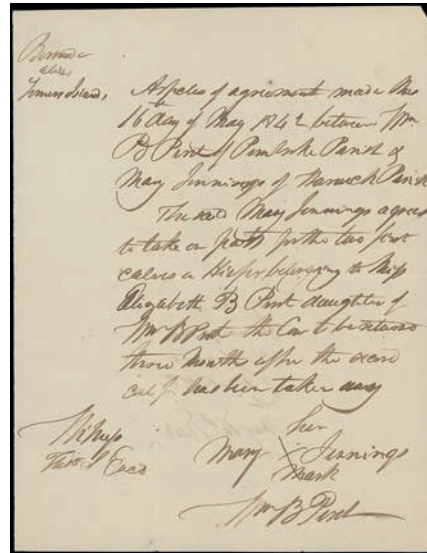 Bermuda
alias
Somers Island,
Articles of agreement made this
16th day of May 1842 between Wm
B Perot of Pembroke Parish &
Mary Jennings of Warwick Parish
The said Mary Jennings agrees
to take on for the two first
calves a Heifer belonging to Miss
Elizabeth B Perot daughter of
Wm B Perot the Cow to be returned
three Month after the second
calf has been taken away
Witness
her
Mary X Jennings
mark
Wm B Perot